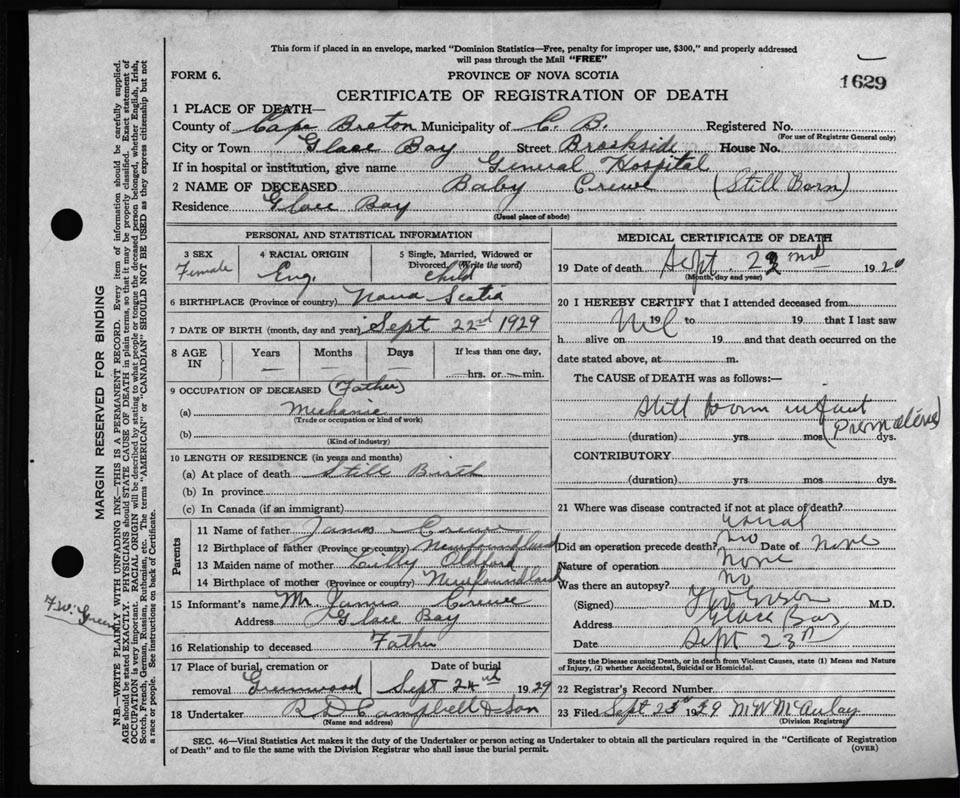 This form if placed in an envelope, marked "Dominion Statistics—Free, penalty for improper use, $300," and properly addressed
will pass through the Mail "FREE"
FORM 6. PROVINCE OF NOVA SCOTIA 1629
CERTIFICATE OF REGISTRATION OF DEATH
1 PLACE OF DEATH—
County of Cape Breton Municipality of C. B. Registered No.
(For use of Registrar General only)
City or Town Glace Bay Street Brookside House No.
If in hospital or institution, give name General Hospital
2 NAME OF DECEASED Baby Crewe (Still Born)
Residence Glace Bay
(Usual place of abode)
PERSONAL AND STATISTICAL INFORMATION
3 SEX Female
4 RACIAL ORIGIN Eng.
5 Single, Married, Widowed or Divorced (Write the word) Child
6 BIRTHPLACE (Province or country) Nova Scotia
7 DATE OF BIRTH (month, day and year) Sept 22nd 1929
8 AGE IN Years — Months — Days — If less than one day, hrs. or min.
9 OCCUPATION OF DECEASED (Father)
(a) Mechanic
(Trade or occupation or kind of work)
(b)
(Kind of industry)
10 LENGTH OF RESIDENCE (in years and months)
(a) At place of death Still Birth
(b) In province
(c) In Canada (if an immigrant)
Parents
11 Name of father James Crewe
12 Birthplace of father (Province or country) Newfoundland
13 Maiden name of mother
14 Birthplace of mother (Province or country) Newfoundland
15 Informant's name Mr. James Crewe
Address Glace Bay
16 Relationship to deceased Father
17 Place of burial, cremation or removal Greenwood
Date of burial Sept 24th 1929
18 Undertaker R D Campbell & Son
(Name and address)
MEDICAL CERTIFICATE OF DEATH
19 Date of death Sept. 22nd 192
(Month, day and year)
20 I HEREBY CERTIFY that I attended deceased from
Nil 19 to 19 that I last saw
h alive on 19 and that death occurred on the
date stated above, at m.
The CAUSE OF DEATH was as follows:—
Still born infant
(Premature)
(duration) yrs mos dys.
CONTRIBUTORY
(duration) yrs. mos. dys.
21 Where was disease contracted if not at place of death?
Did an operation precede death? no Date of None
Nature of operation None
Was there an autopsy? no
(Signed) M.D.
Address Glace Bay
Date Sept 23rd
State the Disease causing Death, or in death from Violent Causes, state (1) Means and Nature
of Injury, (2) whether Accidental, Suicidal or Homicidal.
22 Registrar's Record Number
23 Filed Sept 25th 1929 M W McAulay
(Division Registrar)
SEC. 46—Vital Statistics Act makes it the duty of the Undertaker or person acting as Undertaker to obtain all the particulars required in the "Certificate of Registration
of Death" and to file the same with the Division Registrar who shall issue the burial permit. (OVER)
MARGIN RESERVED FOR BINDING
N.B.—WRITE PLAINLY WITH UNFADING INK—THIS IS A PERMANENT RECORD. Every item of information should be carefully supplied.
AGE should be stated EXACTLY. PHYSICIANS should STATE CAUSE OF DEATH in plain terms, so that it may be properly classified. Exact statement of
OCCUPATION is very important. RACIAL ORIGIN will be described by stating to what people or tongue the deceased person belonged, whether English, Irish,
Scotch, French, German, Russian, Ruthenian, etc. The terms "AMERICAN" or "CANADIAN" SHOULD NOT BE USED as they express citizenship but not
a race or people. See instructions on back of Certificate.
F.W. Green